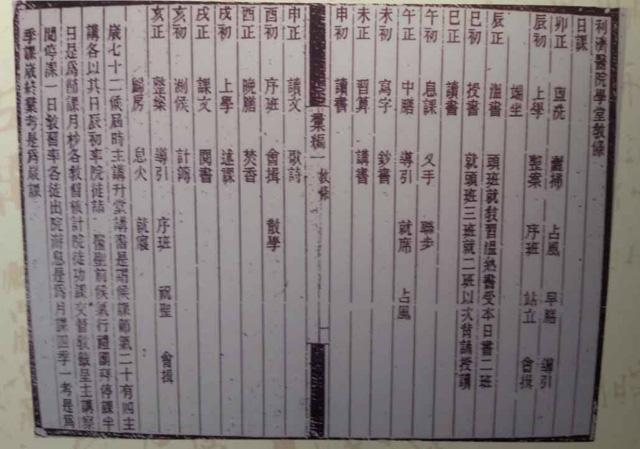 利濟醫院學堂教條
日課
卯正 盥洗 灑掃 占風 早膳 導引
辰初 上學 整案 序班 站立 會揖
端坐
辰正 溫書 頭班就教習溫熟書受本日書二班
巳初 授書 就頭班三班就二班以次背誦授讀
巳正 讀書
午初 息課 叉手 聯步
午正 中膳 導引 就席 占風
未初 寫字 鈔書
未正 習算 講書
申初 讀書
彙編一 教條 一
申正 讀文 歌詩
酉初 序班 會揖 散學
酉正 晚膳 焚香
戌初 上學 述課
戌正 課文 閱書
亥初 測候 計籌
亥正 整案 導引 序班 祝聖 會揖
歸房 息火 就寢
歲七十二候屆時主講升堂講書是謂候課節氣二十有四主
講各以其日辰初率院徒詣 醫聖前候氣行禮團拜停課半
日是為節課月杪各教習核計院徒功課交督教餞呈主講察
閱停課一日教習率各徒出院游息是為月課四季一考是為
季課歲終彙考是為歲課